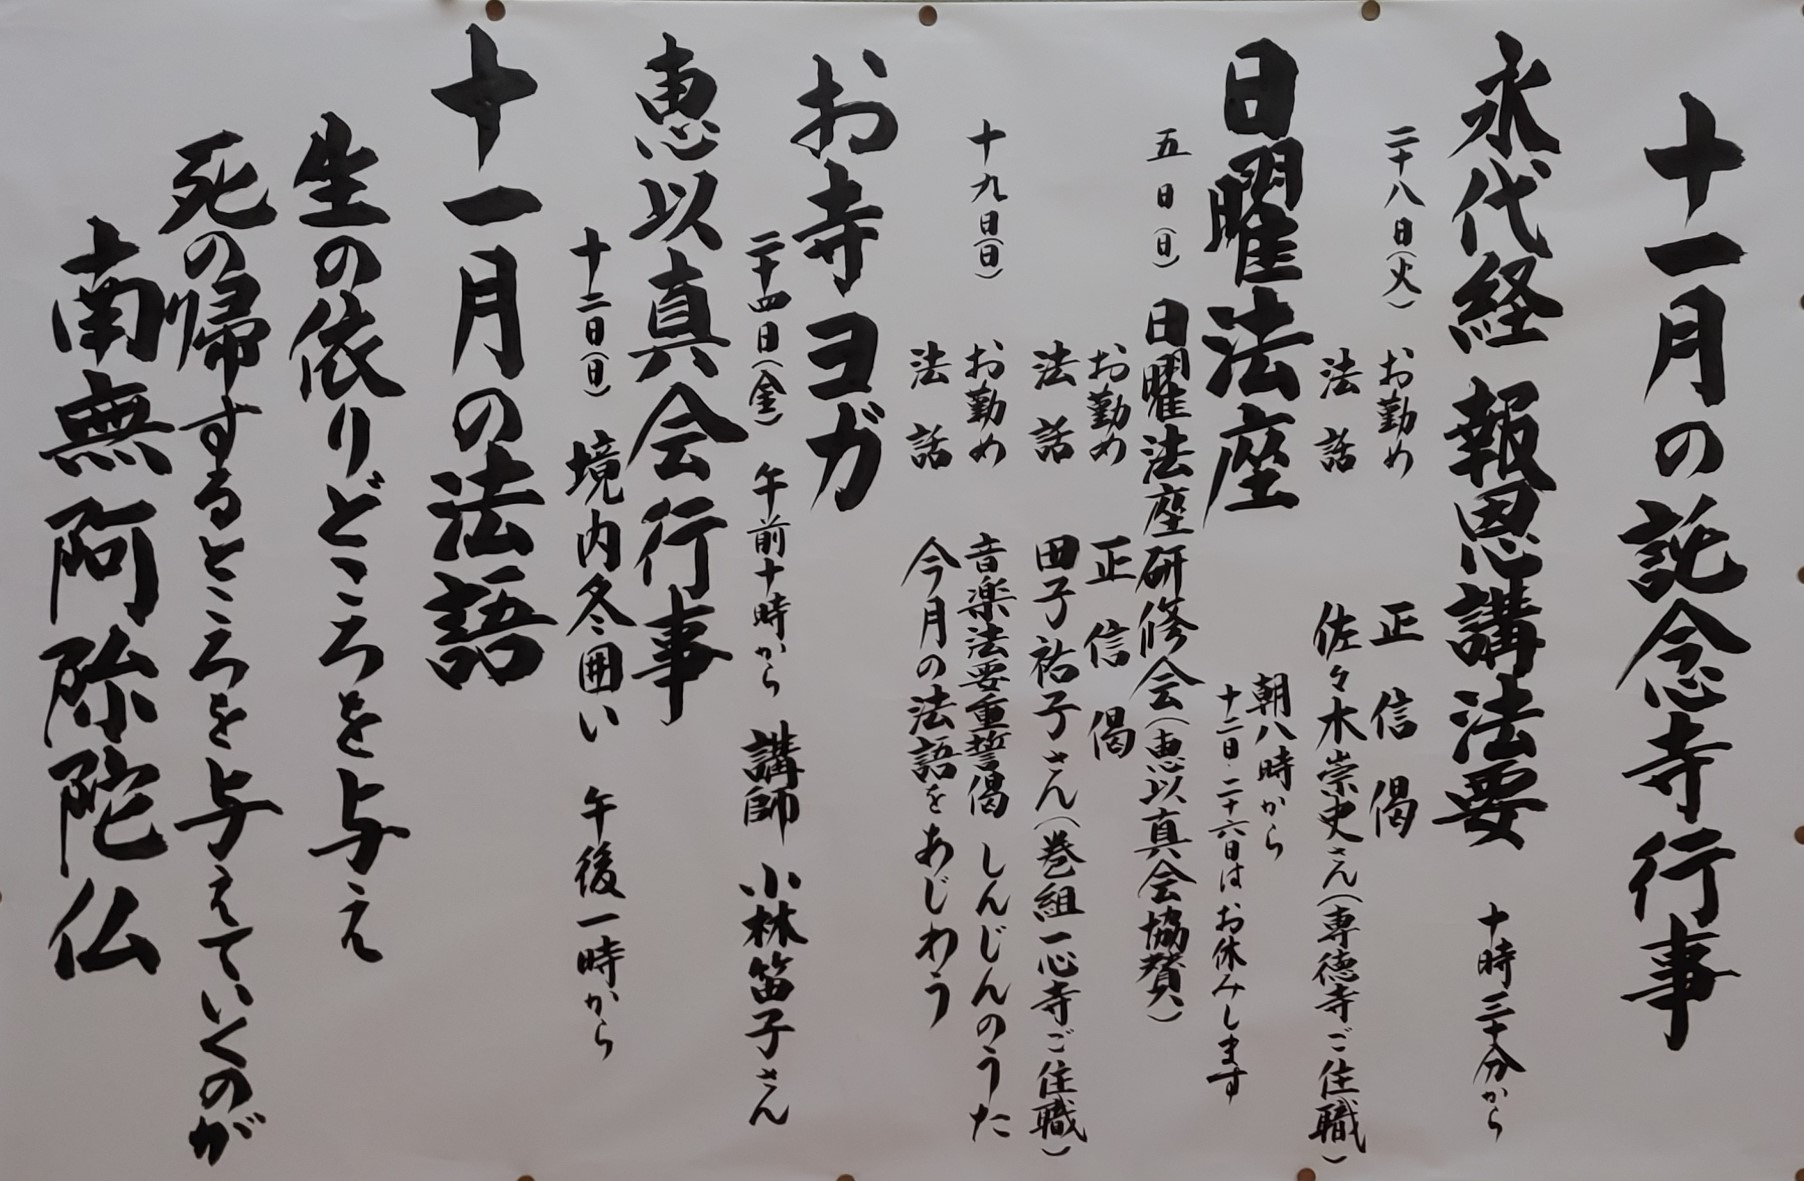 十一月の託念寺行事
永代経 報恩講法要 十時三十分から
二十八日(火) お勤め 正信偈
法話 佐々木崇史さん(専徳寺ご住職)
日曜法座 朝八時から
十二日・二十六日はお休みします
五日(日) 日曜法座研修会(恵以真会協賛)
お勤め 正信偈
法話 田子祐子さん(巻組一心寺ご住職)
十九日(日) お勤め 音楽法要重誓偈 しんじんのうた
法話 今月の法語をあじわう
お寺ヨガ
二十四日(金) 午前十時から 講師 小林笛子さん
恵以真会行事
十二日(日) 境内冬囲い 午後一時から
十一月の法語
生の依りどころを与え
死の帰するところを与えていくのが
南無阿弥陀仏